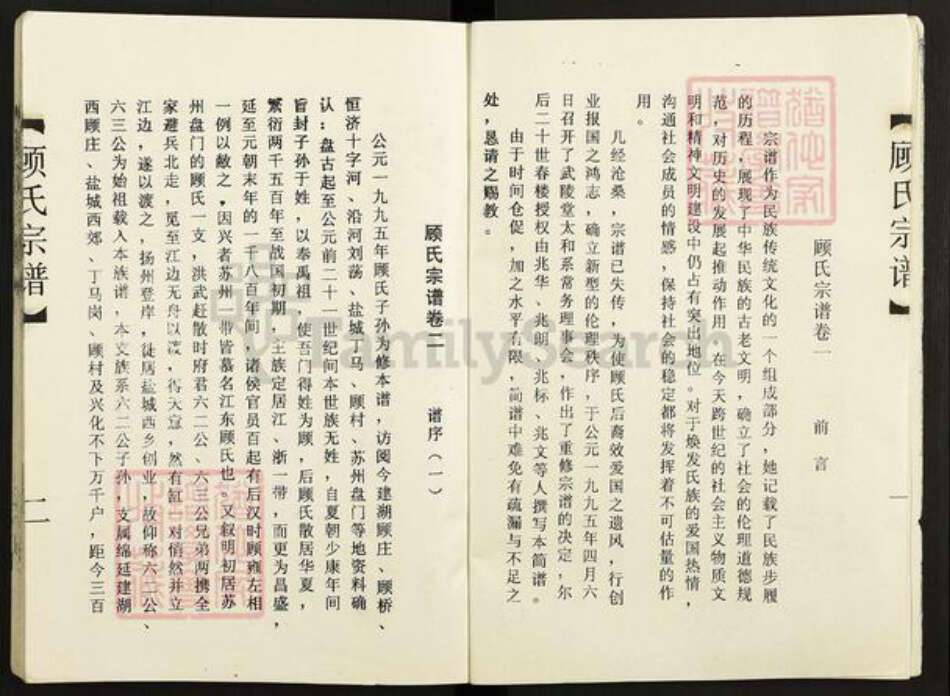 【顾氏宗谱】
一
顾氏宗谱卷一 前言
宗谱作为民族传统文化的一个组成部分，她记载了民族步履
的历程，展现了中华民族的古老文明，确立了社会的伦理道德规
范，对历史的发展起推动作用，在今天跨世纪的社会主义物质文
明和精神文明建设中仍占有突出地位。对于焕发氏族的爱国热情，
沟通社会成员的情感，保持社会的稳定都将发挥着不可估量的作
用。
几经沧桑，宗谱已失传，为使顾氏后裔效爱国之遗风，行创
业报国之鸿志，确立新型的伦理秩序，于公元一九九五年四月六
日召开了武陵堂太和系常务理事会，作出了重修宗谱的决定，尔
后二十世春楼授权由兆华、兆明、兆标、兆文等人撰写本简谱。
由于时间仓促，加之水平有限，简谱中难免有疏漏与不足之
处，恳请之赐教。
顾氏宗谱卷二 谱序（一）
公元一九九五年顾氏子孙为修本谱，访阅今建湖顾庄、顾桥、
恒济十字河、沿河刘荡、盐城丁马、顾村、苏州盘门等地资料确
认：盘古起至公元前二十一世纪间本世族无姓，自夏朝少康年间
旨封子孙于姓，以奉禹祖，使吾门得姓为顾，后顾氏散居华夏，
繁衍两千五百年至战国初期，主族定居江、浙一带，而更为昌盛，
延至元朝末年的一千八百年间，诸侯官员百起有后汉时顾雍左相
一例以敝之，因兴者苏州一带皆慕名江东顾氏也。又叙明初居苏
州盘门的顾氏一支，洪武赶散时府君六二公、六三公兄弟两携全
家避兵北走，觅至江边无舟以渡，得天意，然有缸一对悄然并立
江边，遂以渡之，扬州登岸，徙居盐城西乡创业，故仰称六二公、
六三公为始祖载入本族谱，本文族系六二公子孙，支属绵延建湖
西顾庄、盐城西郊、丁马岗、顾村及兴化不下万千户，距今三百
【顾氏宗谱】
二
FamilySearch